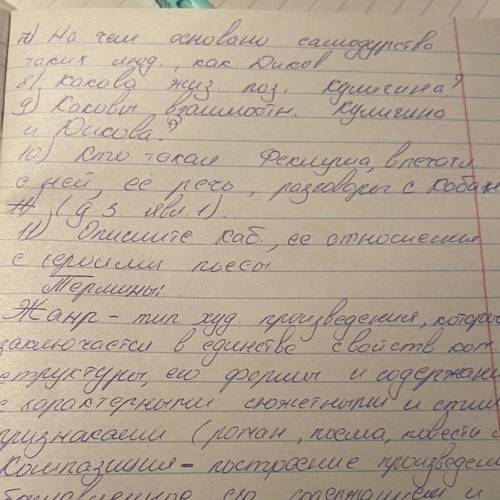 7) На чем основано самодурство
таких люд., как Диков
8) Какова жиз. поз. Кулигина?
9) Каковы взаимоотн. Кулигина
и Дикова?
10) Кто такая Феклуша, впечатл
с ней, её речь, разговоры с Кабан
11) (д. 3 явл. 1).
11) Опишите каб., её отношения
с героями пьесы
Термины:
Жанр - тип худ. произведения, которы
заключается в единстве свойств ком
структуры, его формы и содержани
с характерными сюжетными и стил
признаками (роман, поэма, повесть
Композиция - построение произведен
содержанием и